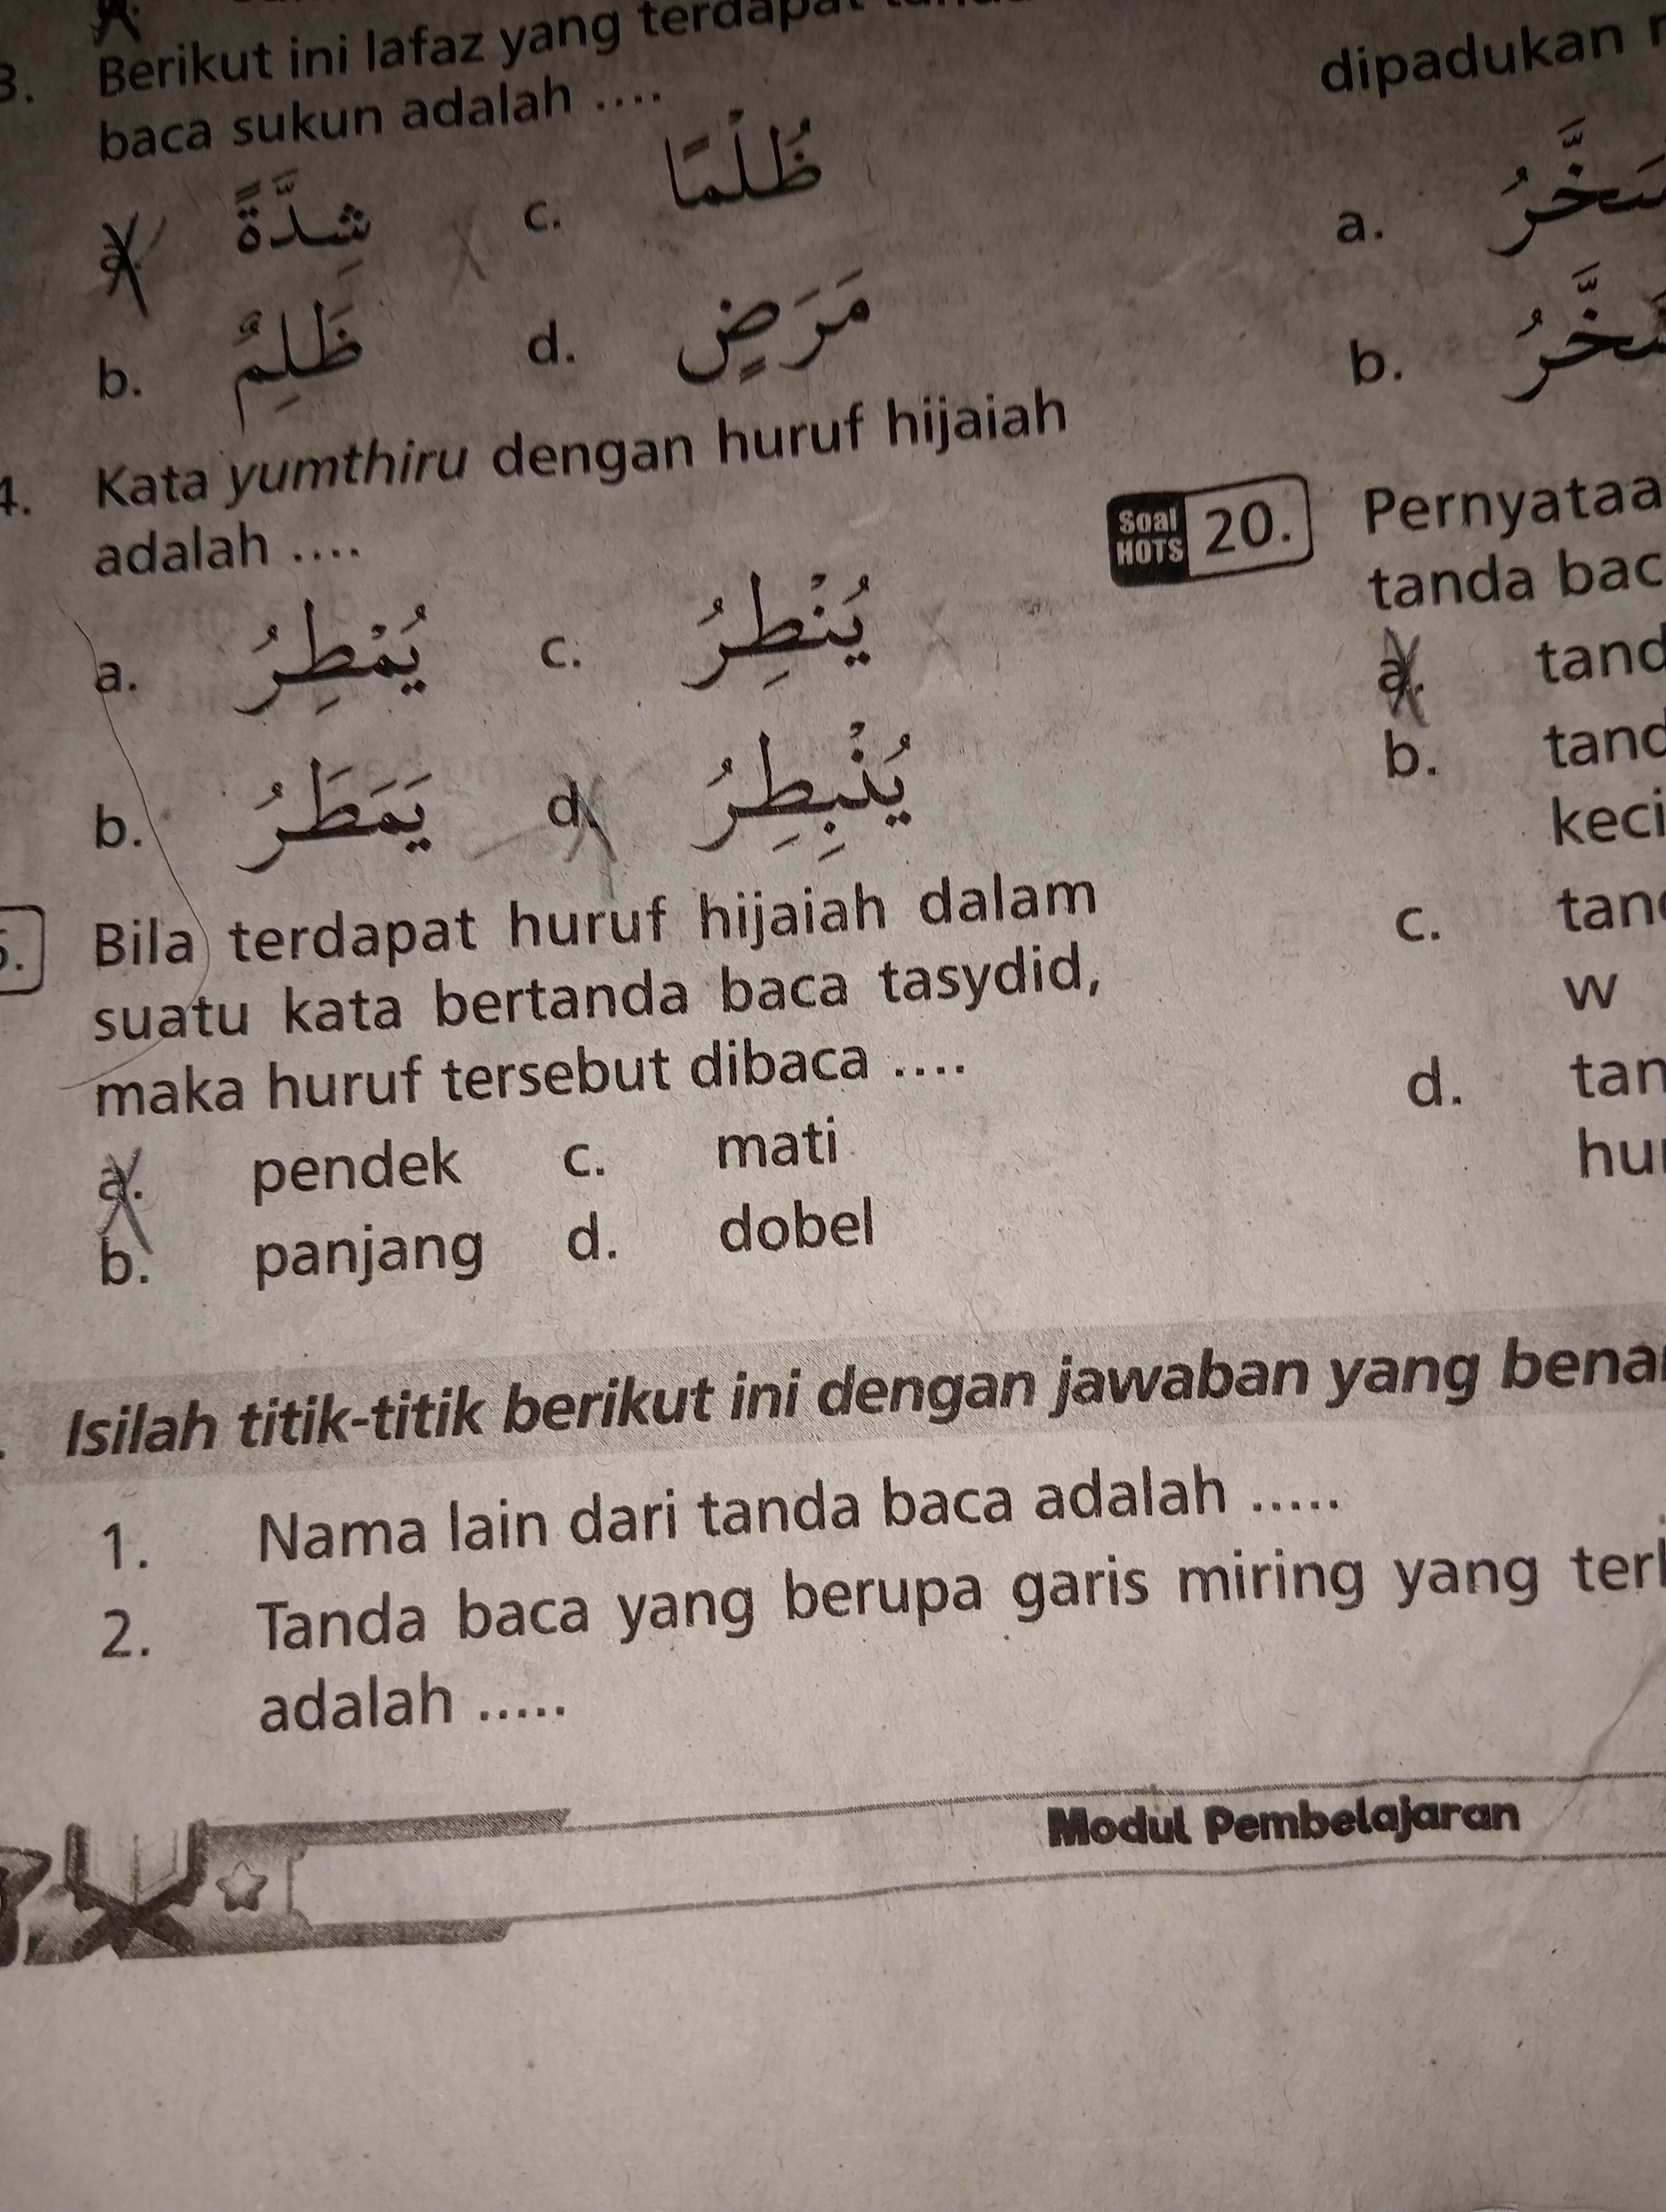 3. Berikut ini lafaz yang
baca sukun adalah ....
a. شِدَّةً c. ظُلْمًا
b. ظَلِمٌ d. مَرَضٍ
4. Kata yumthiru dengan huruf hijaiah
adalah ....
a. يُمْطِرُ c. يُنْطِرُ
b. يَمَطَرُ d. يُنْبِطِرُ
5. Bila terdapat huruf hijaiah dalam
suatu kata bertanda baca tasydid,
maka huruf tersebut dibaca ....
a. pendek c. mati
b. panjang d. dobel
dipadukan
a.
b.
Soal
HOTS 20.
tanda
a.
b.
c.
w
d.
Isilah titik-titik berikut ini dengan jawaban yang
1. Nama lain dari tanda baca adalah .....
2. Tanda baca yang berupa garis miring yang
adalah .....
Modul Pembelajaran